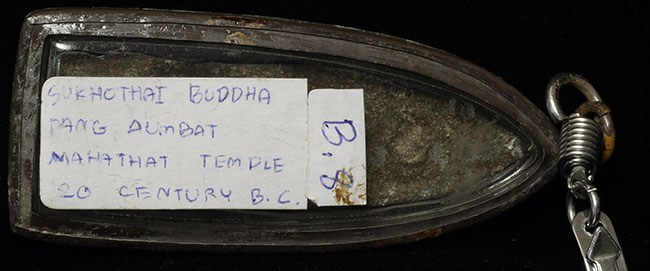 SUKHOTHAI BUDDHA
PANG AUMBAT
MAHATHAT TEMPLE
20 CENTURY B.C.
B.8